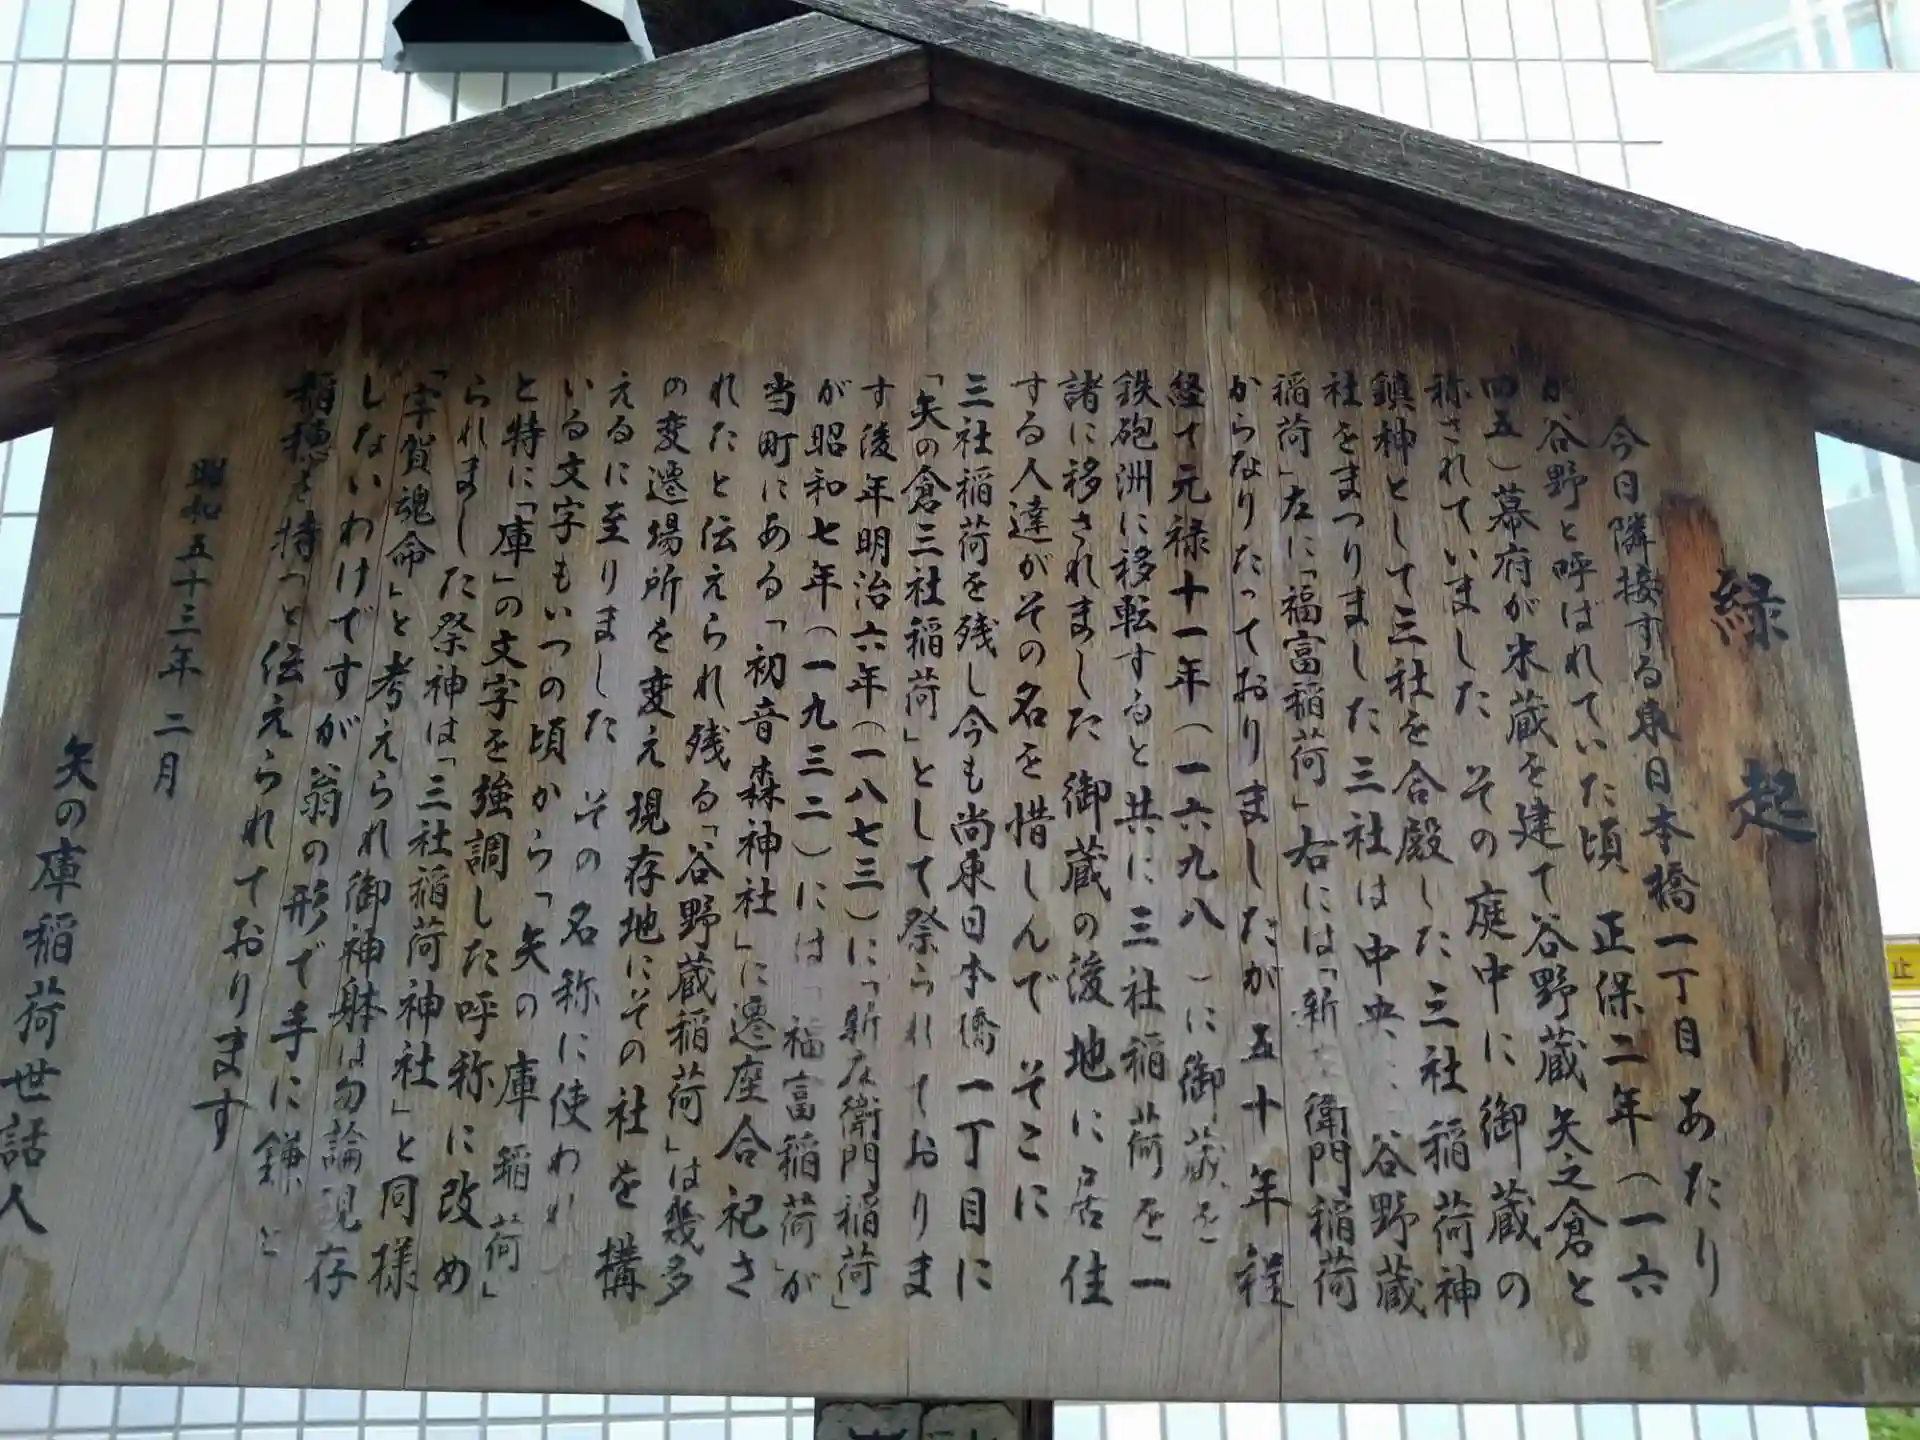 縁起
今日隣接する東日本橋一丁目あたり
が谷野と呼ばれていた頃 正保二年(一六
四五)幕府が米蔵を建て谷野蔵矢之倉と
称されていました その庭中に御蔵の
鎮神として三社を合殿した三社稲荷神
社をまつりました三社は中央に 谷野蔵
稲荷」左に「福富稲荷」右には「新 衛門稲荷
からなりたっておりましたが五十年程
経て元禄十一年(一六九八)に御蔵を
鉄砲洲に移転すると共に三社稲荷を一
諸に移されました 御蔵の後地に居住
する人達がその名を惜しんで そこに
三社稲荷を残し今も尚東日本橋一丁目に
「矢の倉三社稲荷」として祭られておりま
す後年明治六年(一八七三)に「新 衛門稲荷」
が昭和七年(一九三二)には「福富稲荷」が
当町にある「初音森神社」に遷座合祀さ
れたと伝えられ残る「谷野蔵稲荷」は幾多
の変遷場所を変え現存地にその社を構
えるに至りました その名称に使われ
いる文字もいつの頃から「矢の庫稲荷」
と特に「庫」の文字を強調した呼称に改め
られました祭神は「三社稲荷神社」と同様
「宇賀魂命」と考えられ御神躰は勿論現存
しないわけですが翁の形で手に鎌と
稲穂を持つと伝えられております
昭和五十三年 二月
矢の庫稲荷世話人